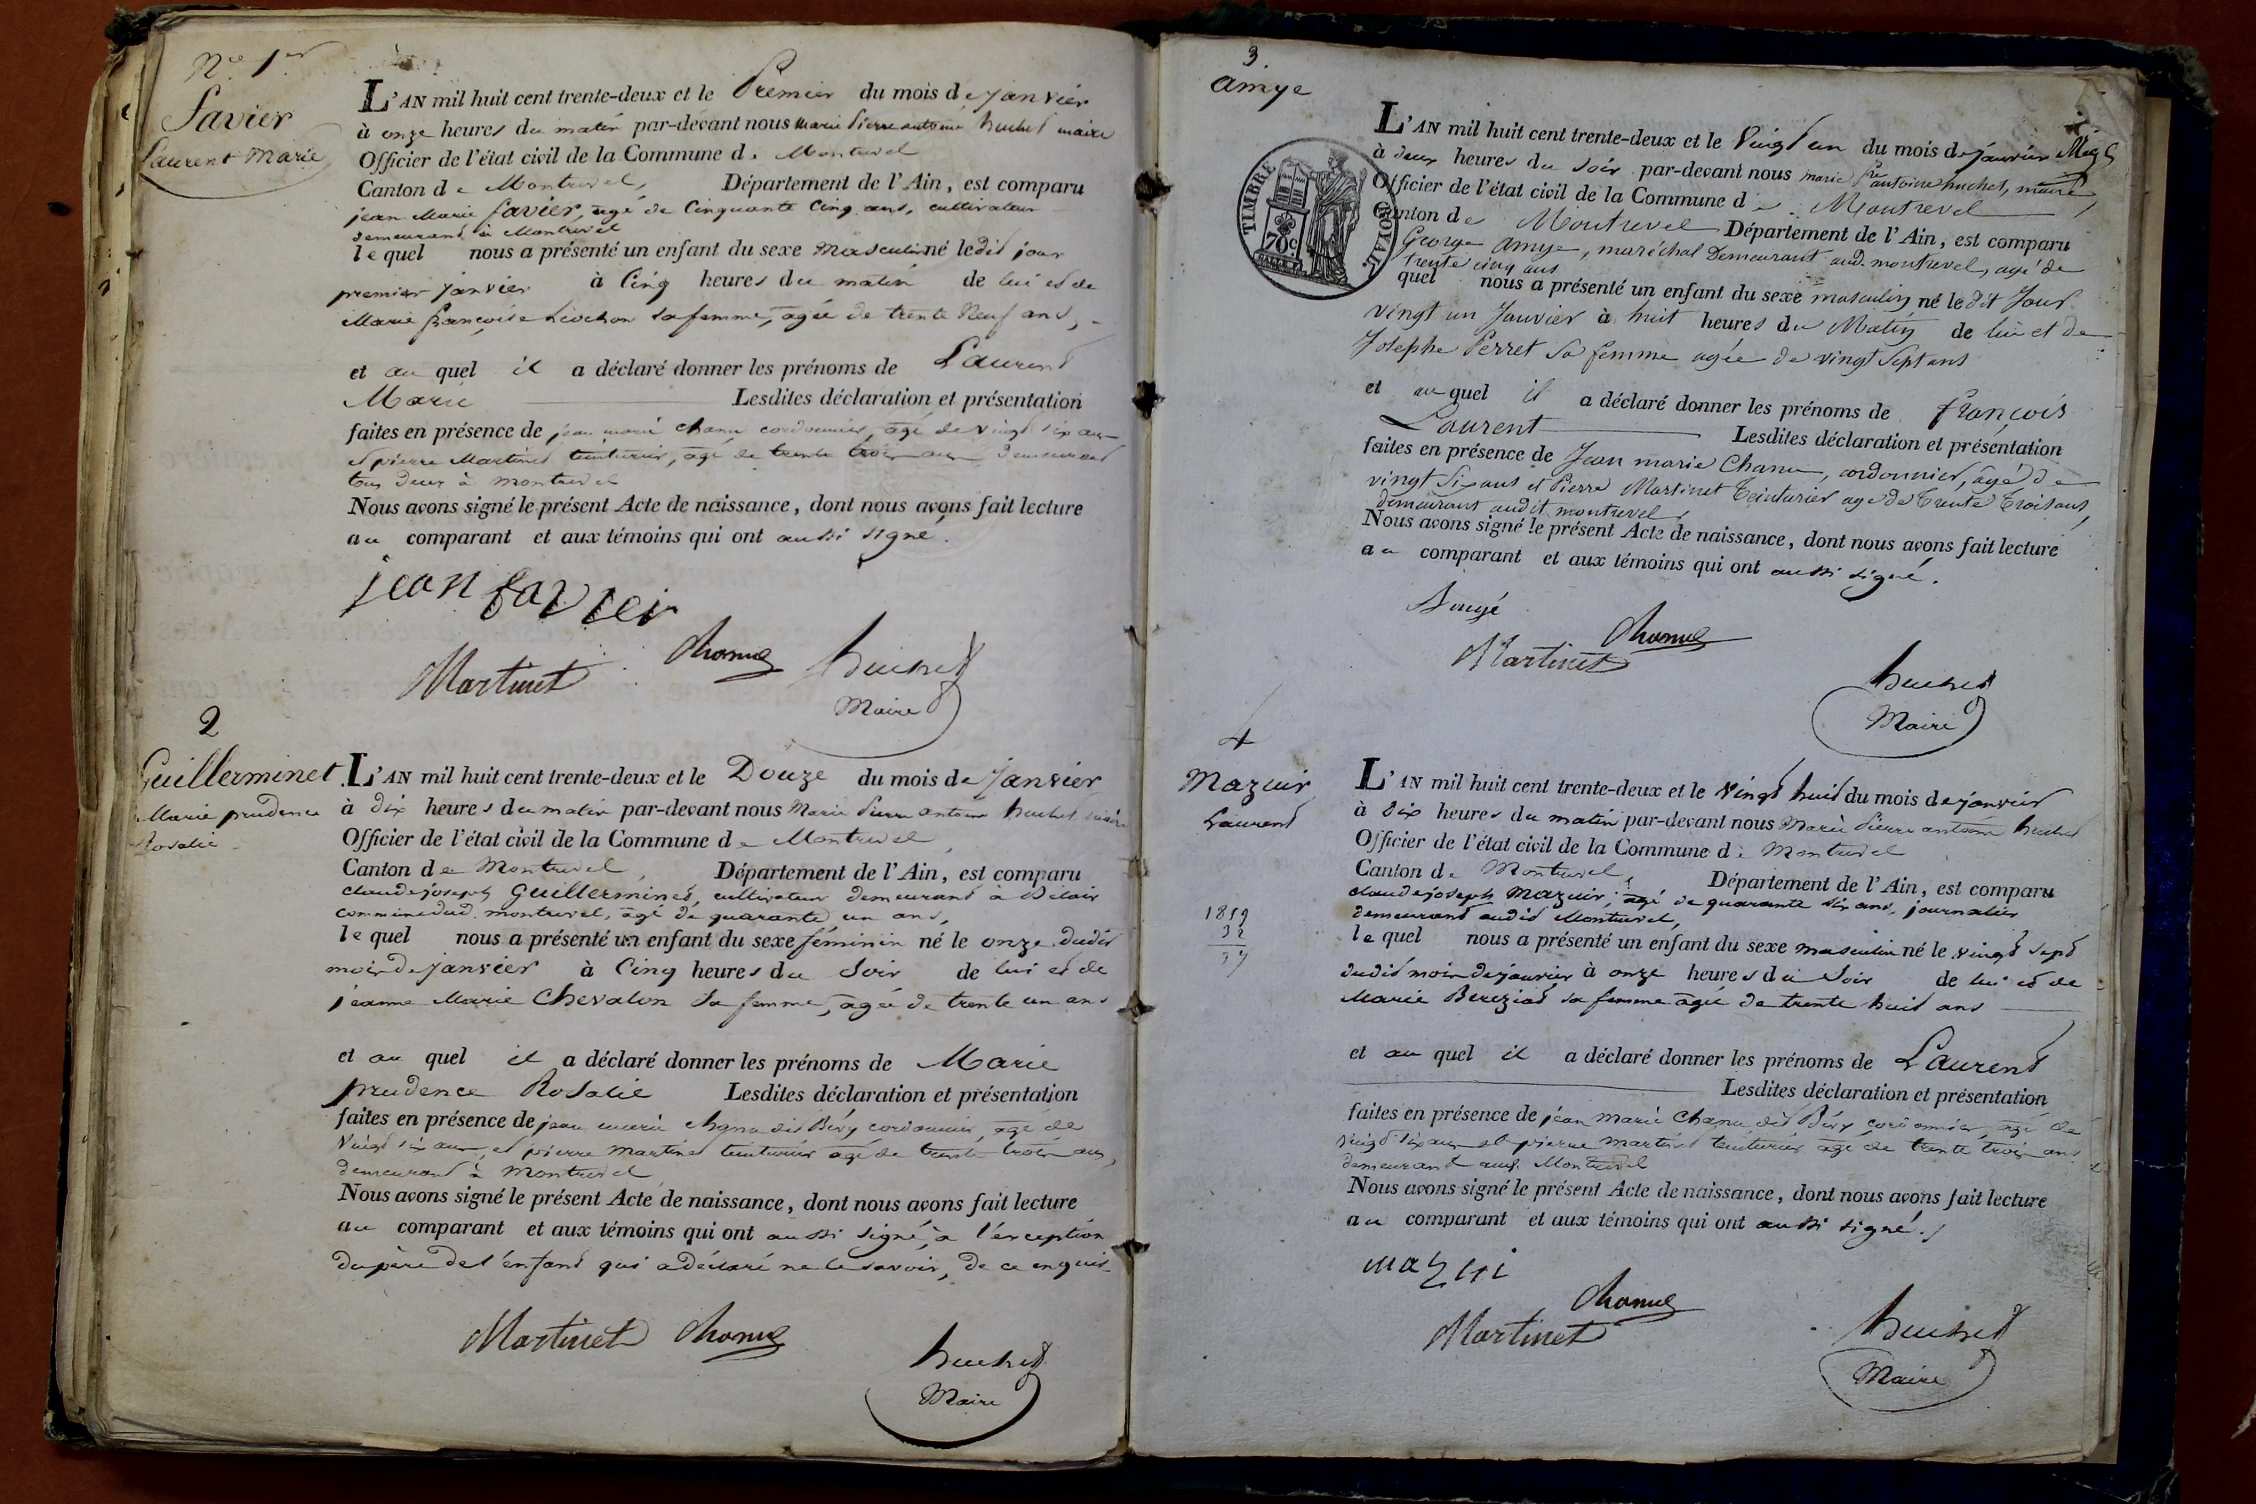 N.o 1er
favier
Laurent Marie
L'AN mil huit cent trente-deux et le Premier du mois de janvier
à onze heures du matin par-devant nous Marie Pierre antoine huchet maire
Officier de l'état civil de la Commune de Montrevel
Canton de Montrevel, Département de l'Ain, est comparu
jean Marie favier, agé de Cinquante Cinq ans, cultivateur
demeurant à Montrevel
lequel nous a présenté un enfant du sexe Masculin né ledit jour
premier janvier à Cinq heures du matin de lui et de
Marie françoise sa femme, agée de trente Neuf ans,
et au quel il a déclaré donner les prénoms de Laurent
Marie Lesdites déclaration et présentation
faites en présence de jean marie chanu cordonnier, agé de vingt six ans
et pierre Martinet teinturier, agé de trente trois ans demeurant
tous deux à montrevel
Nous avons signé le présent Acte de naissance, dont nous avons fait lecture
au comparant et aux témoins qui ont aussi signé.
jean favier
Martinet Chanu huchet
Maire
2
Guillerminet
Marie prudence
Rosalie
L'AN mil huit cent trente-deux et le Douze du mois de janvier
à dix heures du matin par-devant nous Marie Pierre antoine huchet maire
Officier de l'état civil de la Commune de Montrevel
Canton de Montrevel, Département de l'Ain, est comparu
claude joseph Guillerminet, cultivateur demeurant à Bélair
commune dud. montrevel, agé de quarante un ans,
lequel nous a présenté un enfant du sexe féminin né le onze dudit
mois de janvier à Cinq heures du Soir de lui et de
jeanne Marie Chevalon sa femme, agée de trente un ans
et au quel il a déclaré donner les prénoms de Marie
prudence Rosalie Lesdites déclaration et présentation
faites en présence de jean marie chanu dit Béry cordonnier, agé de
vingt six ans, et pierre Martinet teinturier agé de trente trois ans,
demeurant à Montrevel
Nous avons signé le présent Acte de naissance, dont nous avons fait lecture
au comparant et aux témoins qui ont aussi signé, à l'exception
du père de l'enfant qui a déclaré ne le savoir, de ce enquis
Martinet Chanu
huchet
Maire
3
amye
TIMBRE ROYAL
70c
L'AN mil huit cent trente-deux et le Vingt un du mois de janvier
à deux heures du soir par-devant nous marie Pre antoine huchet, maire,
Officier de l'état civil de la Commune de Montrevel
Canton de Montrevel Département de l'Ain, est comparu
George amye, maréchal Demeurant aud. montrevel, agé de
trente cinq ans
quel nous a présenté un enfant du sexe masculin né ledit Jour
vingt un Janvier à huit heures du Matin de lui et de
Josephe Perret sa femme agée de vingt Sept ans
et au quel il a déclaré donner les prénoms de françois
Laurent Lesdites déclaration et présentation
faites en présence de Jean marie Chanu, cordonnier, agé de
vingt Six ans et Pierre Martinet Teinturier agé de Trente Trois ans,
demeurant audit montrevel,
Nous avons signé le présent Acte de naissance, dont nous avons fait lecture
au comparant et aux témoins qui ont aussi signé.
Martinet Chanu
huchet
Maire
4
Mazuir
Laurent
1819
32
L'AN mil huit cent trente-deux et le Vingt huit du mois de janvier
à dix heures du matin par-devant nous Marie Pierre antoine huchet
Officier de l'état civil de la Commune de Montrevel
Canton de Montrevel, Département de l'Ain, est comparu
claude joseph Mazuir, agé de quarante six ans, journalier
demeurant audit Montrevel,
lequel nous a présenté un enfant du sexe masculin né le vingt sept
dudit mois de janvier à onze heures du Soir de lui et de
Marie Bereziat sa femme agée de trente huit ans
et au quel il a déclaré donner les prénoms de Laurent
Lesdites déclaration et présentation
faites en présence de jean marie chanu dit Béry, cordonnier, agé de
vingt six ans et pierre martinet teinturier agé de trente trois ans
demeurant aud. Montrevel
Nous avons signé le présent Acte de naissance, dont nous avons fait lecture
au comparant et aux témoins qui ont aussi signé.
mazui
Chanu
Martinet huchet
Maire